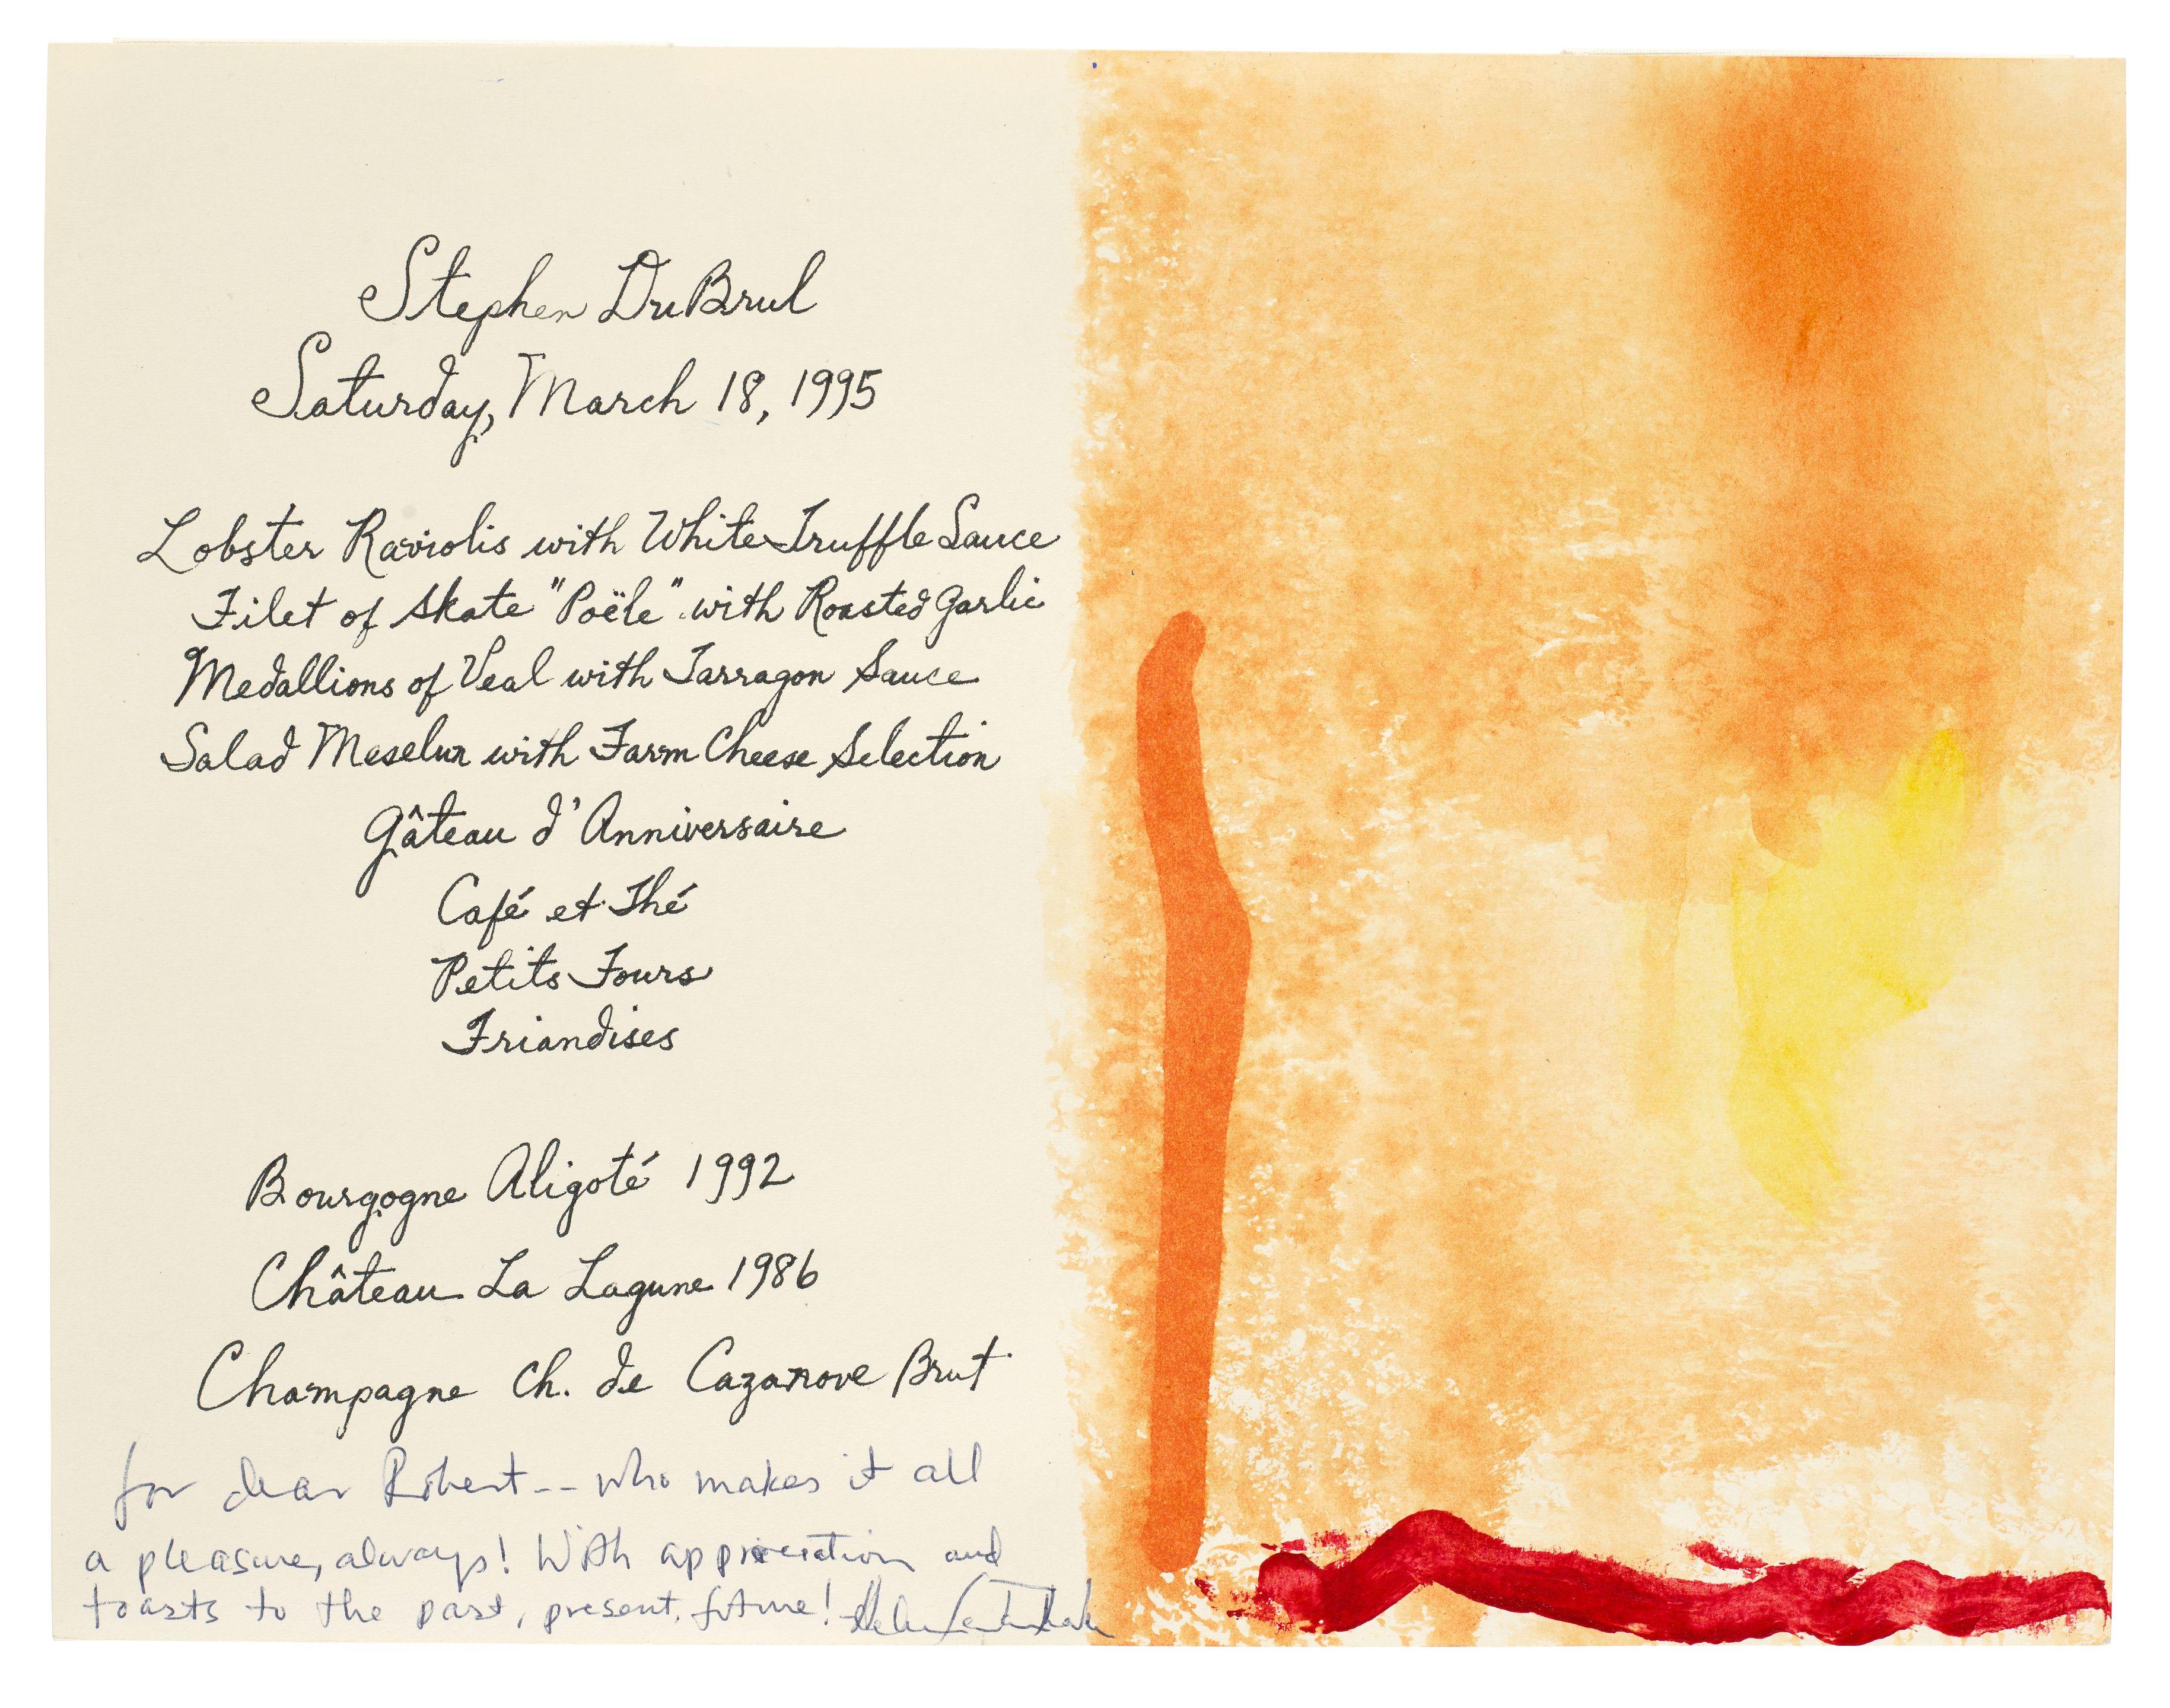 Stephen DuBrul
Saturday, March 18, 1995
Lobster Raviolis with White Truffle Sauce
Filet of Skate "Poële" with Roasted Garlic
Medallions of Veal with Tarragon Sauce
Salad Meselun with Farm Cheese Selection
Gâteau d'Anniversaire
Café et Thé
Petits Fours
Friandises
Bourgogne Aligoté 1992
Château La Lagune 1986
Champagne Ch. de Cazanove Brut
for dear Robert -- who makes it all
a pleasure, always! With appreciation and
toasts to the past, present, future! Helen Frankenthaler